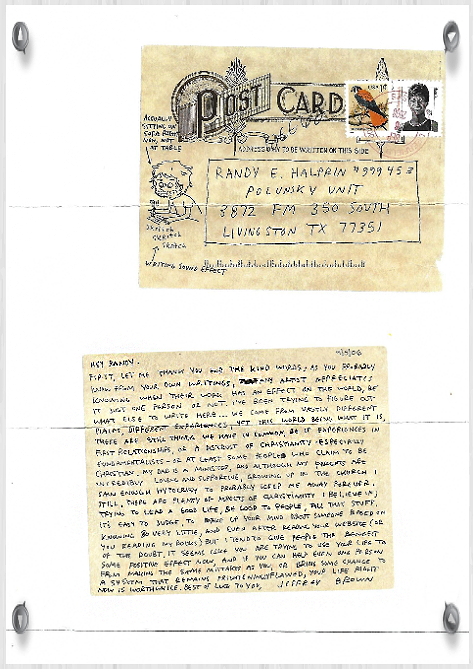 POST CARD
USA 1¢
ADDRESS ONLY TO BE WRITTEN ON THIS SIDE
ACTUALLY
SITTING ON
SOFA RIGHT
NOW, NOT
AT TABLE
RANDY E. HALPRIN #999453
POLUNSKY UNIT
3872 FM 350 SOUTH
LIVINGSTON TX 77351
SCRATCH
WRITING SOUND EFFECT
HEY RANDY.
FIRST, LET ME THANK YOU FOR THE KIND WORDS; AS YOU PROBABLY
KNOW FROM YOUR OWN WRITINGS, ANY ARTIST APPRECIATES
KNOWING WHEN THEIR WORK HAS AN EFFECT ON THE WORLD, BE
IT JUST ONE PERSON OR NOT. I'VE BEEN TRYING TO FIGURE OUT
WHAT ELSE TO WRITE HERE... WE COME FROM VASTLY DIFFERENT
PLACES, DIFFERENT EXPERIENCES, YET THIS WORLD BEING WHAT IT IS,
THERE ARE STILL THINGS WE HAVE IN COMMON, BE IT EXPERIENCES IN
FIRST RELATIONSHIPS, OR A DISTRUST OF CHRISTIANITY - ESPECIALLY
FUNDAMENTALISTS - OR AT LEAST SOME PEOPLE WHO CLAIM TO BE
CHRISTIAN. MY DAD IS A MINISTER, AND ALTHOUGH MY PARENTS ARE
INCREDIBLY LOVING AND SUPPORTIVE, GROWING UP IN THE CHURCH I
SAW ENOUGH HYPOCRISY TO PROBABLY KEEP ME AWAY FOREVER.
STILL, THERE ARE PLENTY OF ASPECTS OF CHRISTIANITY I BELIEVE IN;
TRYING TO LEAD A GOOD LIFE, BE GOOD TO PEOPLE, ALL THIS STUFF.
IT'S EASY TO JUDGE, TO MAKE UP YOUR MIND ABOUT SOMEONE BASED ON
KNOWING SO VERY LITTLE, AND EVEN AFTER READING YOUR WEBSITE (OR
YOU READING MY BOOKS) BUT I TEND TO GIVE PEOPLE THE BENEFIT
OF THE DOUBT. IT SEEMS LIKE YOU ARE TRYING TO USE YOUR LIFE TO
SOME POSITIVE EFFECT NOW, AND IF YOU CAN HELP EVEN ONE PERSON
FROM MAKING THE SAME MISTAKES AS YOU, OR BRING SOME CHANGE TO
A SYSTEM THAT REMAINS FLAWED, YOUR LIFE RIGHT
NOW IS WORTHWHILE. BEST OF LUCK TO YOU, JEFFREY BROWN